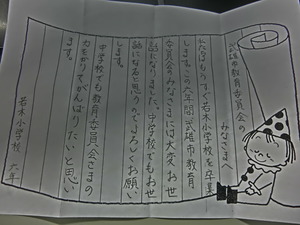 武雄市教育委員会の
みなさまへ
わたしはもうすぐ若木小学校を卒業
します。この六年間、武雄市教育
委員会のみなさまには大変お世
話になりました。中学校でもお世
話になると思うのでよろしくお願い
します。
中学校でも教育委員会さまの
力をかりてがんばりたいと思い
ます。
若木小学校 六年